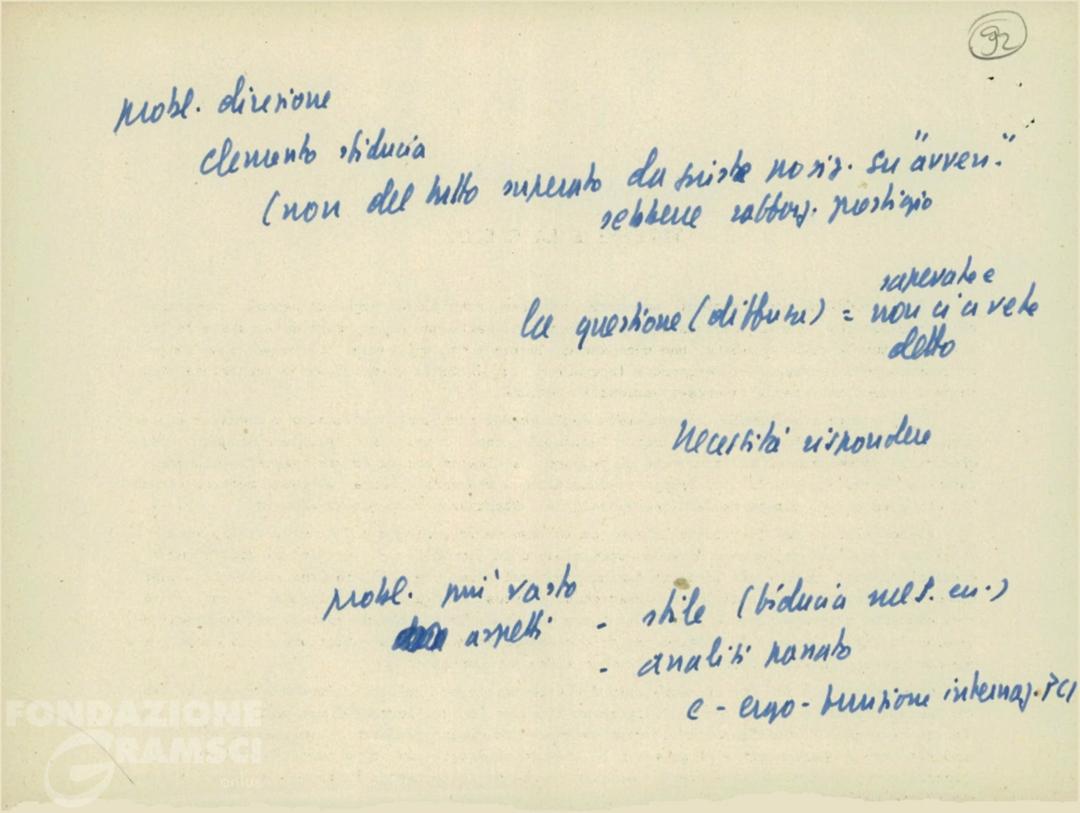 92
probl. direzione
elemento sfiducia
(non del tutto superato da giuste posiz. su "avven."
sebbene rafforz. prestigio
la questione (diffusa) =
sapevate e
non ci avete
detto
Necessità rispondere
probl. più vasto
aspetti
- stile (fiducia nel P. ecc.)
- analisi passato
e - ergo - funzione internaz. PCI
FONDAZIONE
GRAMSCI
onlus